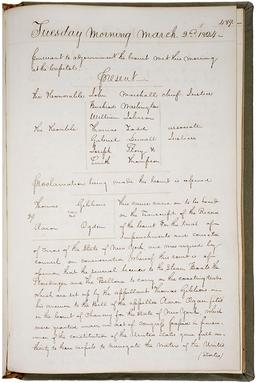 489.
Tuesday Morning March 2d 1824.
Pursuant to adjournment the Court met this morning
at the Capitol.
Present
The Honorable John Marshall Chief Justice
Bushrod Washington
William Johnson
The Honble Thomas Todd associate
Gabriel Duvall Justices
Joseph Story &
Smith Thompson
Proclamation being made the Court is opened
Thomas Gibbons
vs
Aaron Ogden
This cause came on to be heard
on the Transcript of the Record
of the Court for the trial of
Impeachments and correction
of Errors of the State of New York and was argued by
counsel on consideration whereof this Court is of
opinion that the several licenses to the Steam Boats the
Stoudinger and the Bellona to carry on the coasting trade
which are set up by the appellant Thomas Gibbons in
his answer to the Bill of the appellee Aaron Ogden filed
in the Court of Chancery for the State of New York which
were granted under an act of Congress passed in pursu-
ance of the constitution of the United States gave full au-
thority to those vessels to navigate the Waters of the United
(States)